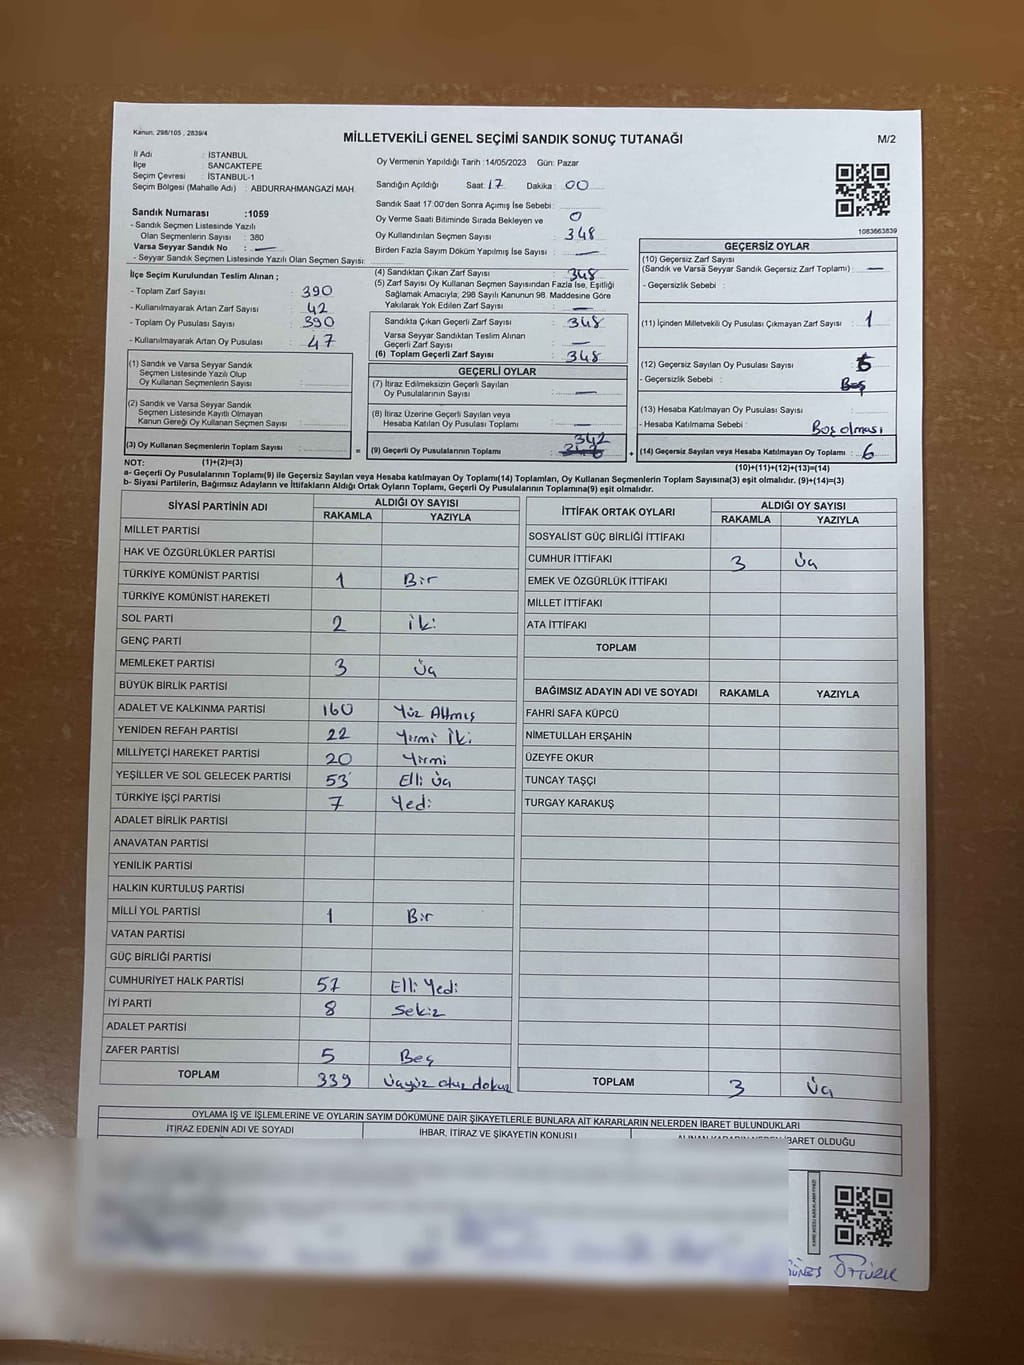 Kanun, 298/105 , 2839/4
MİLLETVEKİLİ GENEL SEÇİMİ SANDIK SONUÇ TUTANAĞI
M/2
İl Adı : İSTANBUL
İlçe : SANCAKTEPE
Seçim Çevresi : İSTANBUL-1
Seçim Bölgesi (Mahalle Adı) : ABDURRAHMANGAZİ MAH.
Sandık Numarası :1059
- Sandık Seçmen Listesinde Yazılı
Olan Seçmenlerin Sayısı : 380
Varsa Seyyar Sandık No : —
- Seyyar Sandık Seçmen Listesinde Yazılı Olan Seçmen Sayısı:
Oy Vermenin Yapıldığı Tarih :14/05/2023 Gün: Pazar
Sandığın Açıldığı Saat: 17 Dakika : 00
Sandık Saat 17:00'den Sonra Açımış İse Sebebi :
Oy Verme Saati Bitiminde Sırada Bekleyen ve : 0
Oy Kullandırılan Seçmen Sayısı : 348
Birden Fazla Sayım Döküm Yapılmış İse Sayısı : —
1083663839
İlçe Seçim Kurulundan Teslim Alınan ;
- Toplam Zarf Sayısı : 390
- Kullanılmayarak Artan Zarf Sayısı : 42
- Toplam Oy Pusulası Sayısı : 390
- Kullanılmayarak Artan Oy Pusulası : 47
(1) Sandık ve Varsa Seyyar Sandık
Seçmen Listesinde Yazılı Olup
Oy Kullanan Seçmenlerin Sayısı :
(2) Sandık ve Varsa Seyyar Sandık
Seçmen Listesinde Kayıtlı Olmayan
Kanun Gereği Oy Kullanan Seçmen Sayısı :
(3) Oy Kullanan Seçmenlerin Toplam Sayısı :
(4) Sandıktan Çıkan Zarf Sayısı : 348
(5) Zarf Sayısı Oy Kullanan Seçmen Sayısından Fazla İse, Eşitliği
Sağlamak Amacıyla; 298 Sayılı Kanunun 98. Maddesine Göre
Yakılarak Yok Edilen Zarf Sayısı : —
Sandıkta Çıkan Geçerli Zarf Sayısı : 348
Varsa Seyyar Sandıktan Teslim Alınan
Geçerli Zarf Sayısı : —
(6) Toplam Geçerli Zarf Sayısı : 348
GEÇERLİ OYLAR
(7) İtiraz Edilmeksizin Geçerli Sayılan
Oy Pusulalarının Sayısı : —
(8) İtiraz Üzerine Geçerli Sayılan veya
Hesaba Katılan Oy Pusulası Toplamı : —
= (9) Geçerli Oy Pusulalarının Toplamı : 342
GEÇERSİZ OYLAR
(10) Geçersiz Zarf Sayısı
(Sandık ve Varsa Seyyar Sandık Geçersiz Zarf Toplamı) : —
- Geçersizlik Sebebi :
(11) İçinden Milletvekili Oy Pusulası Çıkmayan Zarf Sayısı : 1
(12) Geçersiz Sayılan Oy Pusulası Sayısı : 5
- Geçersizlik Sebebi : Boş
(13) Hesaba Katılmayan Oy Pusulası Sayısı :
- Hesaba Katılmama Sebebi : Boş olması
+ (14) Geçersiz Sayılan veya Hesaba Katılmayan Oy Toplamı : 6
NOT: (1)+(2)=(3)
(10)+(11)+(12)+(13)=(14)
a- Geçerli Oy Pusulalarının Toplamı(9) ile Geçersiz Sayılan veya Hesaba katılmayan Oy Toplamı(14) Toplamları, Oy Kullanan Seçmenlerin Toplam Sayısına(3) eşit olmalıdır. (9)+(14)=(3)
b- Siyasi Partilerin, Bağımsız Adayların ve İttifakların Aldığı Ortak Oyların Toplamı, Geçerli Oy Pusulalarının Toplamına(9) eşit olmalıdır.
SİYASİ PARTİNİN ADI
ALDIĞI OY SAYISI
RAKAMLA YAZIYLA
MİLLET PARTİSİ
HAK VE ÖZGÜRLÜKLER PARTİSİ
TÜRKİYE KOMÜNİST PARTİSİ 1 Bir
TÜRKİYE KOMÜNİST HAREKETİ
SOL PARTİ 2 İki
GENÇ PARTİ
MEMLEKET PARTİSİ 3 Üç
BÜYÜK BİRLİK PARTİSİ
ADALET VE KALKINMA PARTİSİ 160 Yüz Altmış
YENİDEN REFAH PARTİSİ 22 Yirmi İki
MİLLİYETÇİ HAREKET PARTİSİ 20 Yirmi
YEŞİLLER VE SOL GELECEK PARTİSİ 53 Elli Üç
TÜRKİYE İŞÇİ PARTİSİ 7 Yedi
ADALET BİRLİK PARTİSİ
ANAVATAN PARTİSİ
YENİLİK PARTİSİ
HALKIN KURTULUŞ PARTİSİ
MİLLİ YOL PARTİSİ 1 Bir
VATAN PARTİSİ
GÜÇ BİRLİĞİ PARTİSİ
CUMHURİYET HALK PARTİSİ 57 Elli Yedi
İYİ PARTİ 8 Sekiz
ADALET PARTİSİ
ZAFER PARTİSİ 5 Beş
TOPLAM 339 Üçyüz otuz dokuz
İTTİFAK ORTAK OYLARI
ALDIĞI OY SAYISI
RAKAMLA YAZIYLA
SOSYALİST GÜÇ BİRLİĞİ İTTİFAKI
CUMHUR İTTİFAKI 3 Üç
EMEK VE ÖZGÜRLÜK İTTİFAKI
MİLLET İTTİFAKI
ATA İTTİFAKI
TOPLAM
BAĞIMSIZ ADAYIN ADI VE SOYADI RAKAMLA YAZIYLA
FAHRİ SAFA KÜPCÜ
NİMETULLAH ERŞAHİN
ÜZEYFE OKUR
TUNCAY TAŞÇI
TURGAY KARAKUŞ
TOPLAM 3 Üç
OYLAMA İŞ VE İŞLEMLERİNE VE OYLARIN SAYIM DÖKÜMÜNE DAİR ŞİKAYETLERLE BUNLARA AİT KARARLARIN NELERDEN İBARET BULUNDUKLARI
İTİRAZ EDENİN ADI VE SOYADI
İHBAR, İTİRAZ VE ŞİKAYETİN KONUSU
ALINAN KARARIN NEDEN İBARET OLDUĞU
ÖZTÜRK